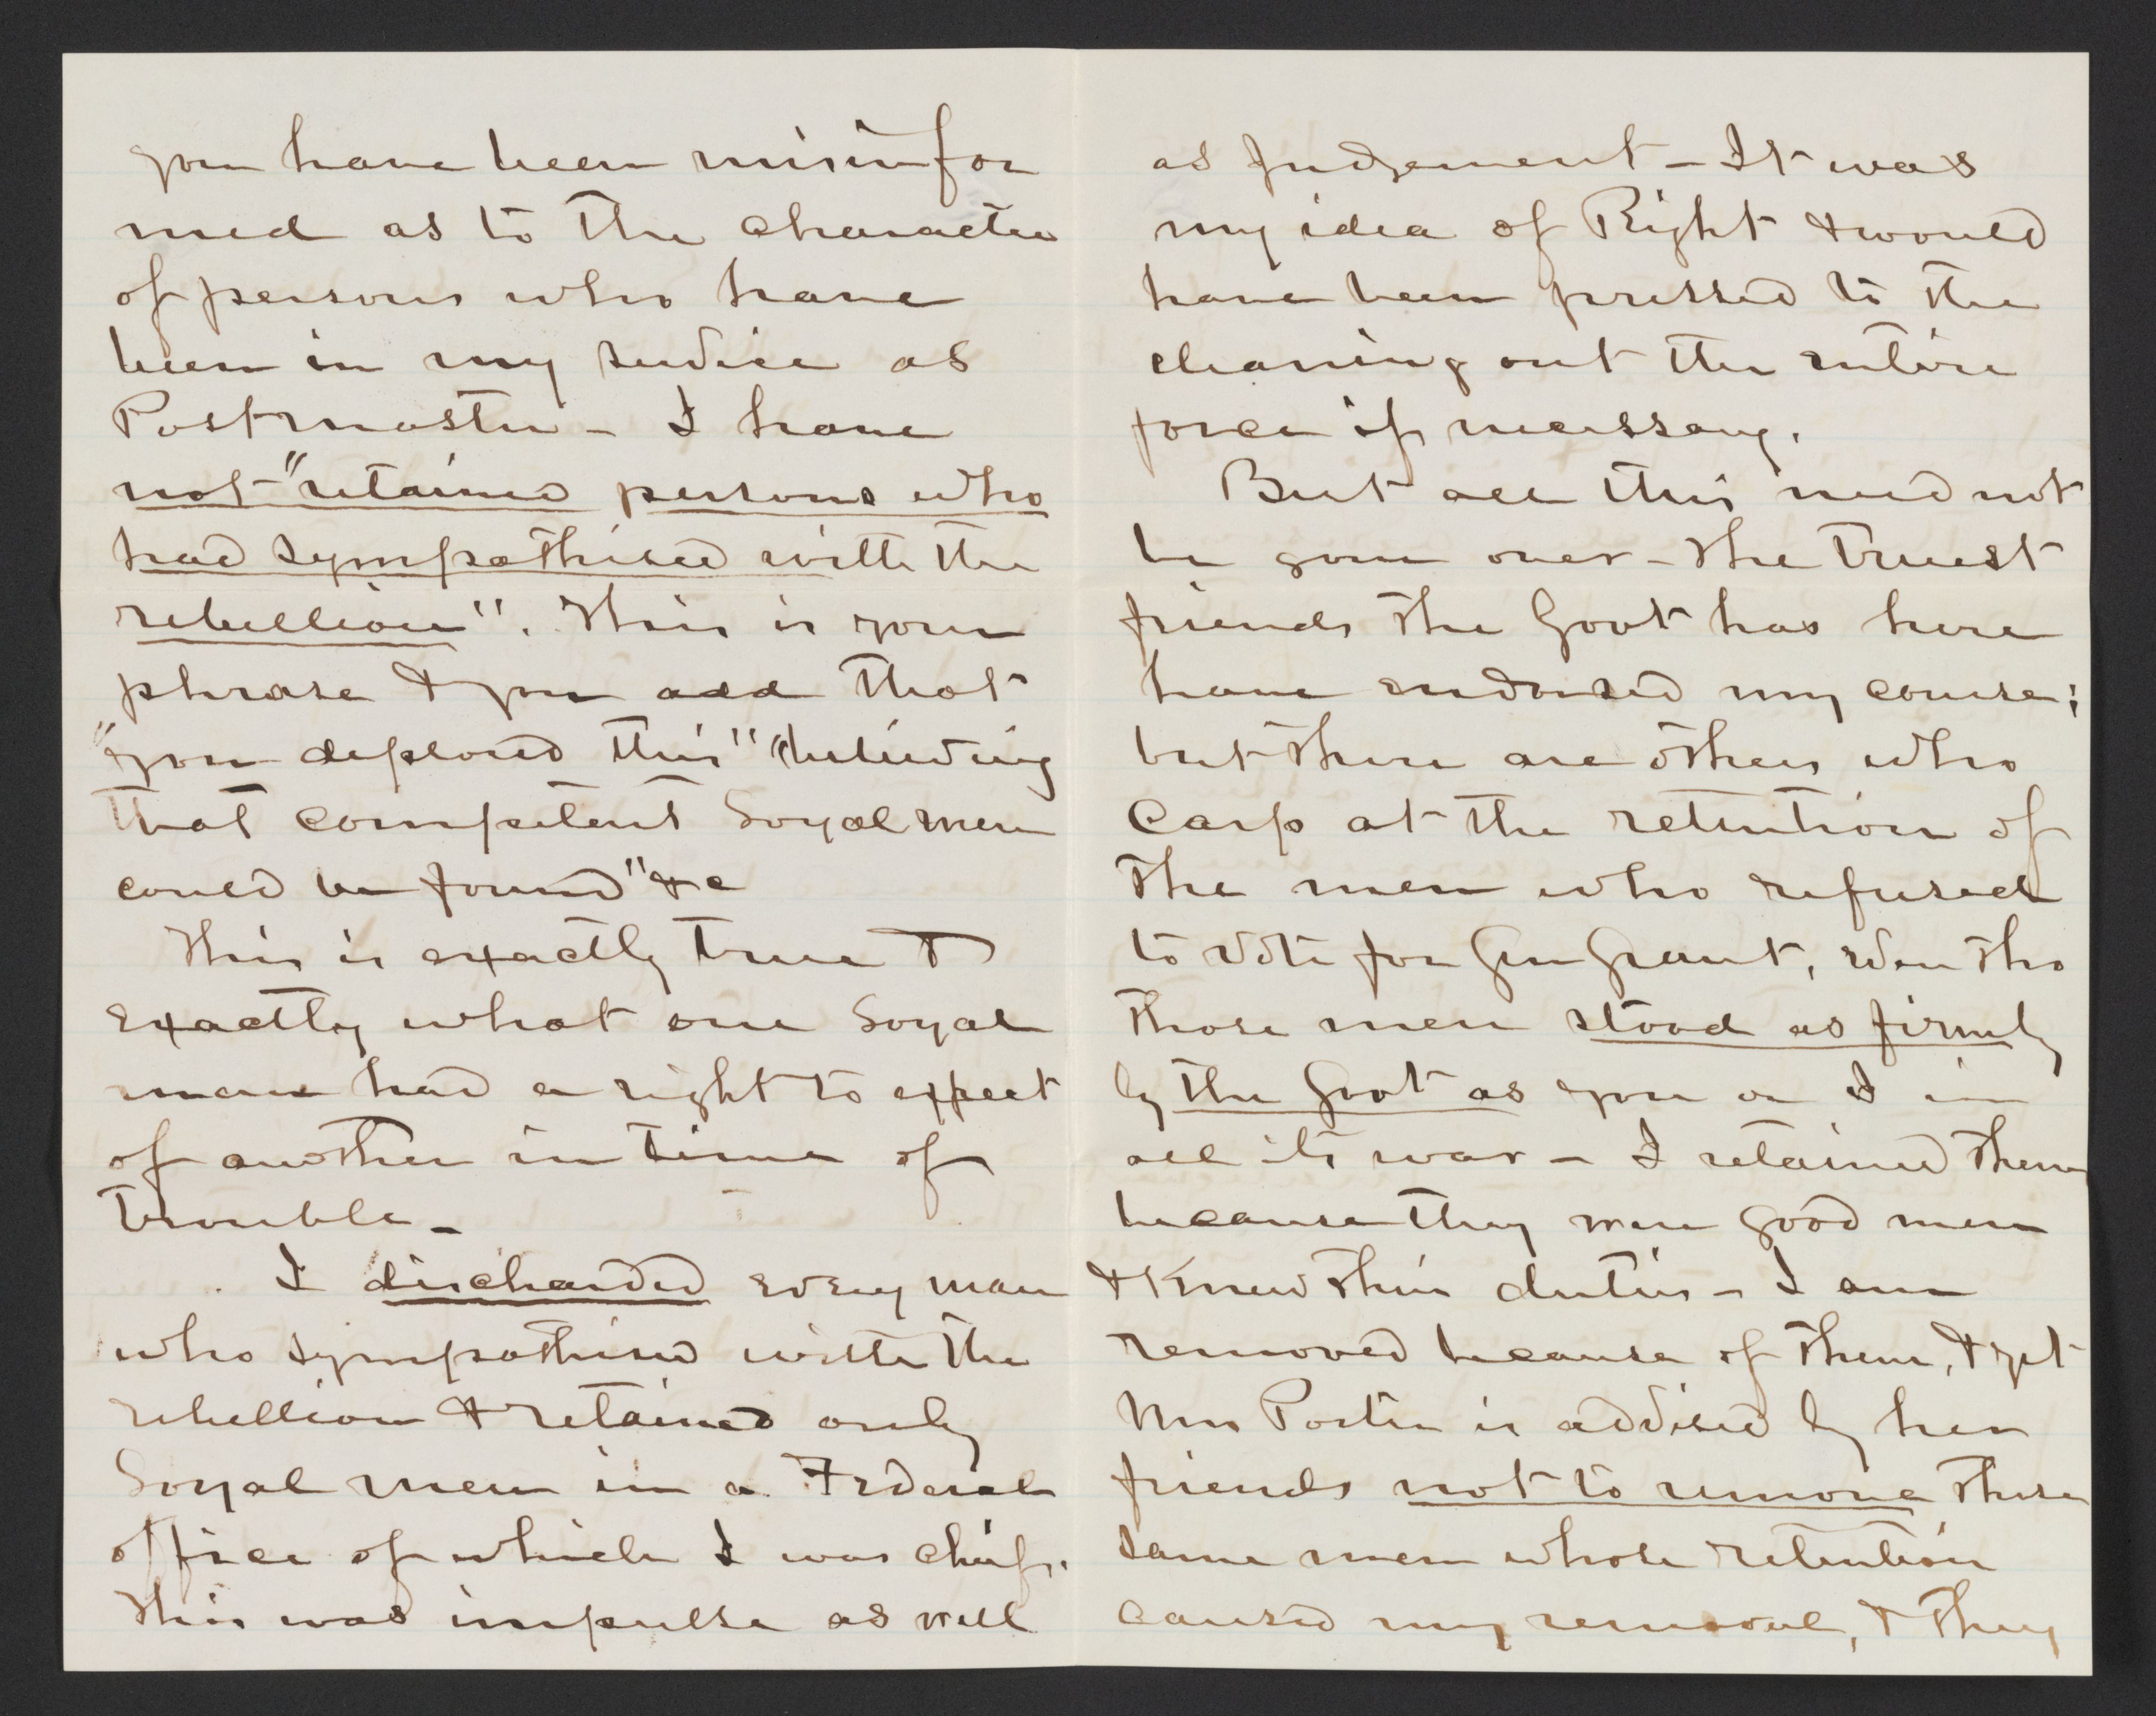 you have been misinfor
med as to the character
of persons who have
been in my service as
Postmaster - I have
not "retained persons who
had sympathised with the
rebellion". This is your
phrase & you add that
"you deplored this" "believing
that competent Loyal men
could be found" &c
This is exactly true &
exactly what one Loyal
man had a right to expect
of another in time of
trouble -
I discharded every man
who sympathised with the
rebellion & retained only
Loyal men in a Federal
office of which I was chief.
This was impulse as well
as judgement - It was
my idea of Right & would
have been pressed to the
cleaning out the entire
force if necessary.
But all this need not
be gone over - The truest
friends the Govt has here
have endorsed my course;
but there are others who
carp at the retention of
the men who refused
to vote for Gen Grant, even tho
those men stood as firmly
by the Govt as you or I in
all its war - I retained them
because they were good men
& Knew their duties - I am
removed because of them, & yet
Mrs Porter is advised by her
friends not to remove these
same men whose retention
caused my removal, & they